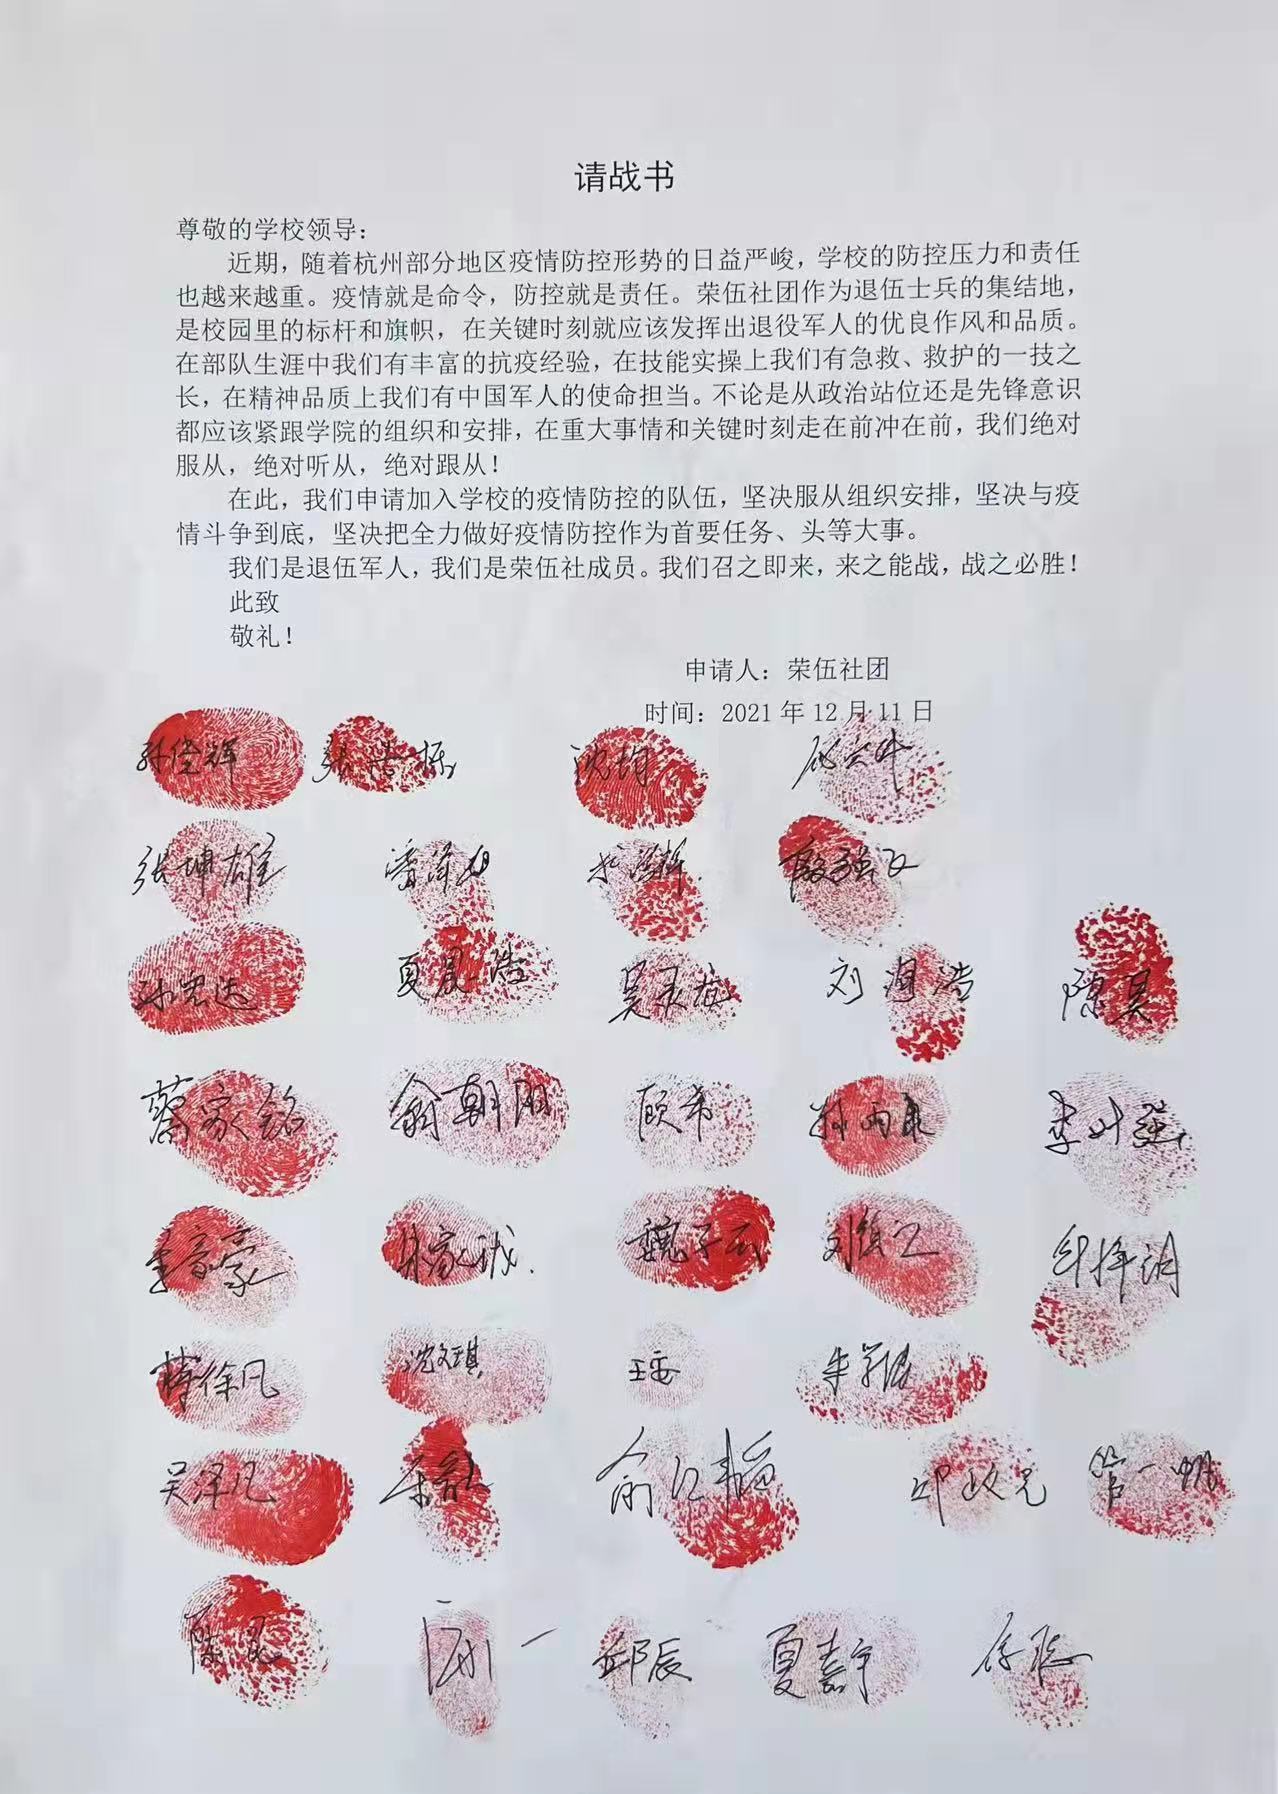 请战书
尊敬的学校领导：
近期，随着杭州部分地区疫情防控形势的日益严峻，学校的防控压力和责任
也越来越重。疫情就是命令，防控就是责任。荣伍社团作为退伍士兵的集结地，
是校园里的标杆和旗帜，在关键时刻就应该发挥出退役军人的优良作风和品质。
在部队生涯中我们有丰富的抗疫经验，在技能实操上我们有急救、救护的一技之
长，在精神品质上我们有中国军人的使命担当。不论是从政治站位还是先锋意识
都应该紧跟学院的组织和安排，在重大事情和关键时刻走在前冲在前，我们绝对
服从，绝对听从，绝对跟从！
在此，我们申请加入学校的疫情防控的队伍，坚决服从组织安排，坚决与疫
情斗争到底，坚决把全力做好疫情防控作为首要任务、头等大事。
我们是退伍军人，我们是荣伍社成员。我们召之即来，来之能战，战之必胜！
此致
敬礼！
申请人：荣伍社团
时间：2021年12月11日
孙佳辉 沈均
张坤雄 殷强飞
孙宏达 夏晨浩 陈昊
蔡家铭 俞朝阳 顾希
李豪豪 朱家诚 魏子云
徐凡 沈文琪
吴泽凡 邱政元 管一帆
邱辰 夏嘉宇